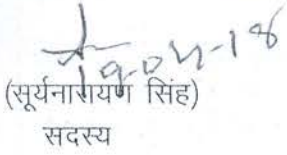 19-04-18
(सूर्यनारायण सिंह)
सदस्य